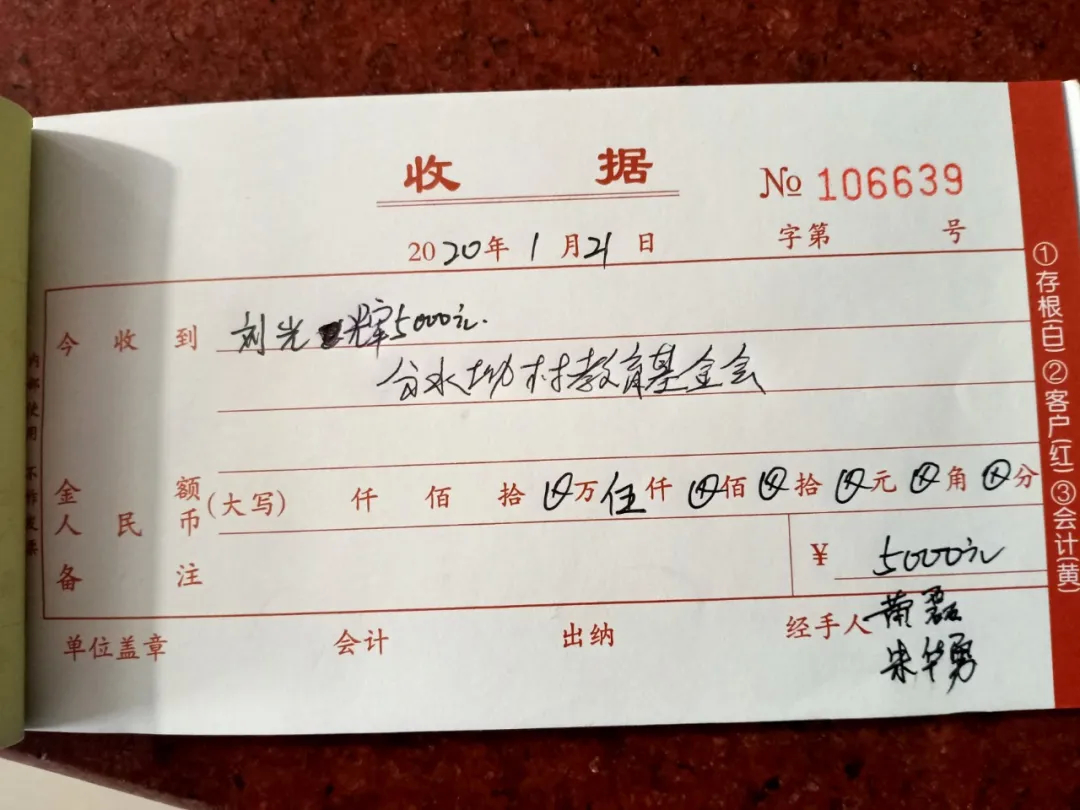 收据
No 106639
2020年1月21日
字第 号
今收到 刘光辉5000元.
分水坳村教育基金会
金额
人民币
(大写) 仟 佰 拾 ⊗万 伍仟 ⊗佰 ⊗拾 ⊗元 ⊗角 ⊗分
备注
¥ 5000元
单位盖章 会计 出纳 经手人 黄磊
朱华勇
①存根(白)②客户(红)③会计(黄)
内部使用 不作发票